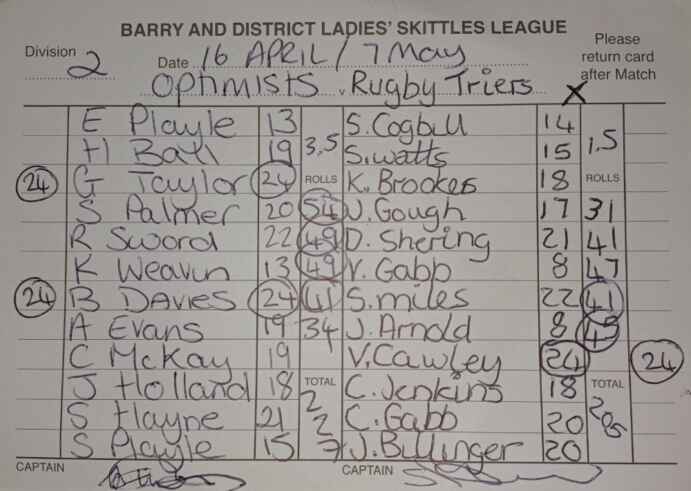 BARRY AND DISTRICT LADIES' SKITTLES LEAGUE
Division 2 Date 16 APRIL / 7 May Please return card after Match
Optimists v Rugby Triers X
E Playle 13 3.5 S. Cogbill 14 1.5
H Ball 19 S. Watts 15
24 G Taylor 24 ROLLS K. Brookes 18 ROLLS
S Palmer 20 54 J. Gough 17 31
R Sword 22 49 D. Shering 21 41
K Weavin 13 49 V. Gabb 8 47
24 B DAVIES 24 41 S. miles 22 41
A Evans 19 34 J. Arnold 8 45
C McKay 19 V. Cawley 24 24
J Holland 18 TOTAL C. Jenkins 18 TOTAL
S Hayne 21 227 C. Gabb 20 205
S Playle 15 J. Billinger 20
CAPTAIN CAPTAIN